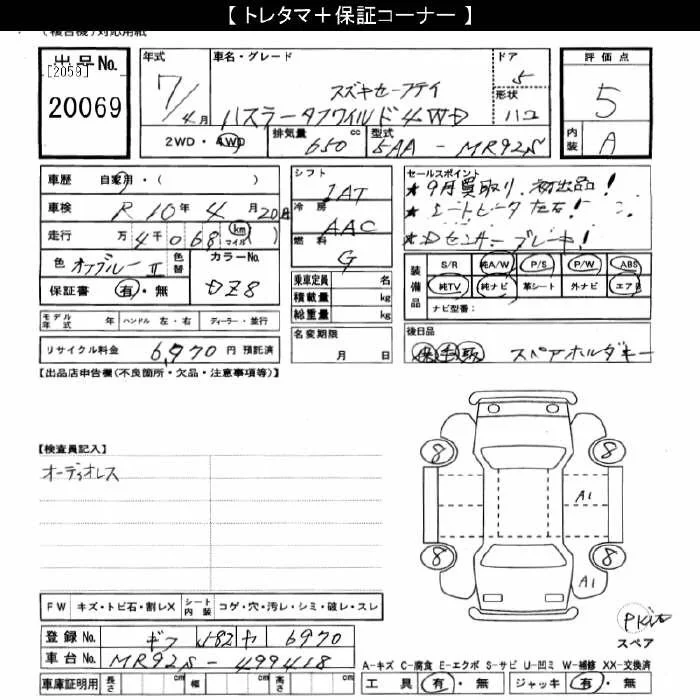 【 トレタマ＋保証コーナー 】
(複合機)対応用紙
出品No.
[2059]
20069
年式
7/4月
車名・グレード
スズキセーフティ
ハスラータフワイルド4WD
ドア
5
形状
ハコ
評価点
5
内装
A
2WD・4WD
排気量
650 cc
型式
5AA - MR92S
車歴 自家用・( )
車検 R 10年 4月 20日
走行 万 4千 068 km マイル ( )
色 オフブルーⅡ
色替
カラーNo.
DZ8
保証書 有・無
シフト
IAT
冷房
AAC
燃料
G
乗車定員 名
積載量 kg
総重量 kg
セールスポイント
★9月買取り、初出品!
★シートヒータ左右!
★Dセンサーブレーキ!
装備品
S/R 純A/W P/S P/W ABS
純TV 純ナビ 革シート 外ナビ エアB
ナビ型番:
モデル年式 年 ハンドル 左・右 ディーラー・並行
リサイクル料金 6,970 円 預託済
名変期限
月 日
後日品
保 取 スペアホルダキー
【出品店申告欄(不良箇所・欠品・注意事項等)】
【検査員記入】
オーディオレス
8 8
A1
8 8
A1
FW キズ・トビ石・割レX シート内装 コゲ・穴・汚レ・シミ・破レ・スレ
PKit
スペア
登録No. ギフ 582 ヤ 6970
車台No. MR92S - 499418
車庫証明用 長さ cm 幅 cm 高さ cm
A-キズ C-腐食 E-エクボ S-サビ U-凹ミ W-補修 XX-交換済
工具 有・無 ジャッキ 有・無